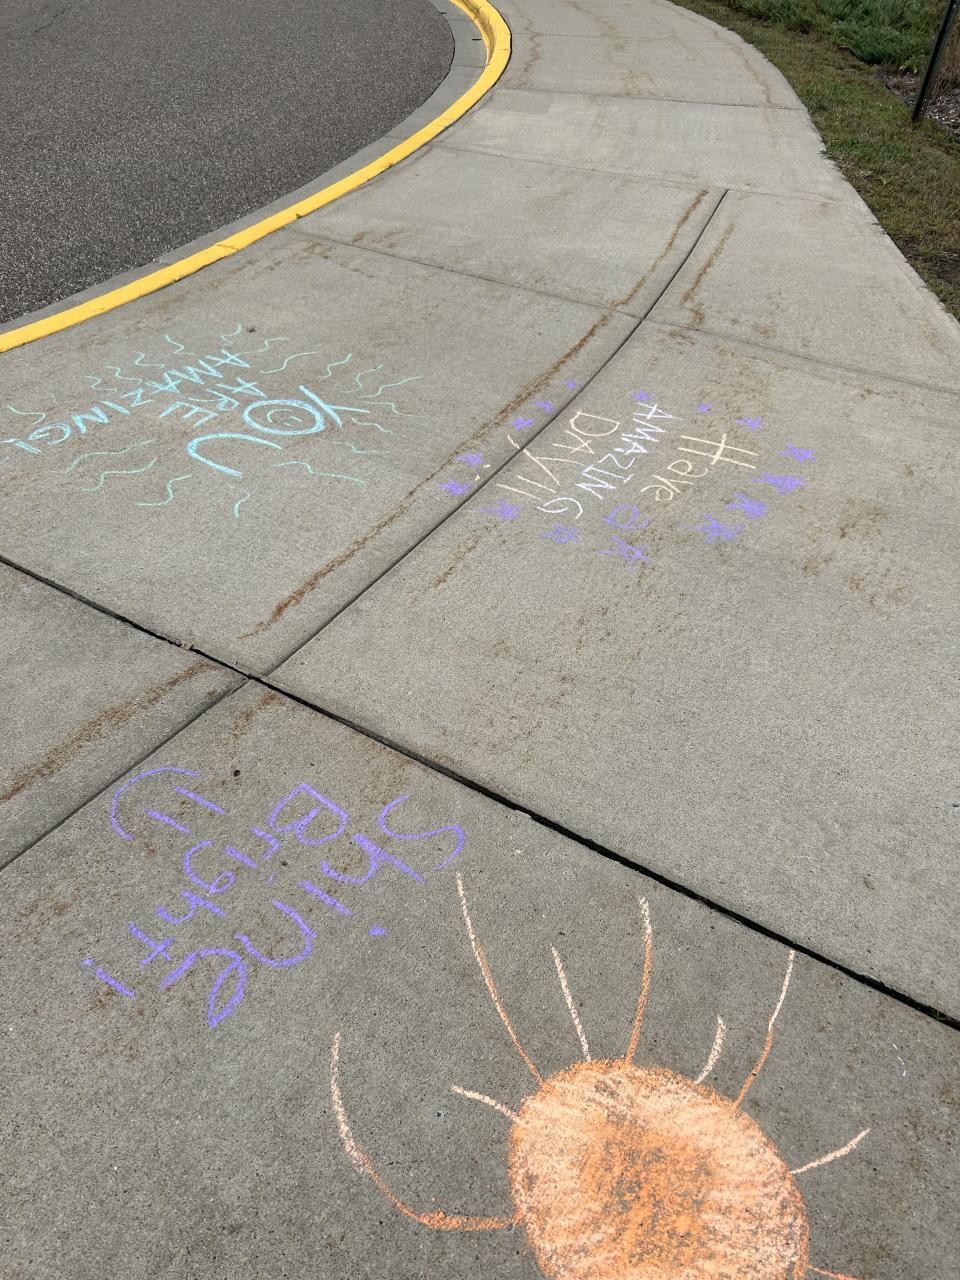 YOU
ARE
AMAZING!
Have a
AMAZING
DAY!!
Shine
Bright!